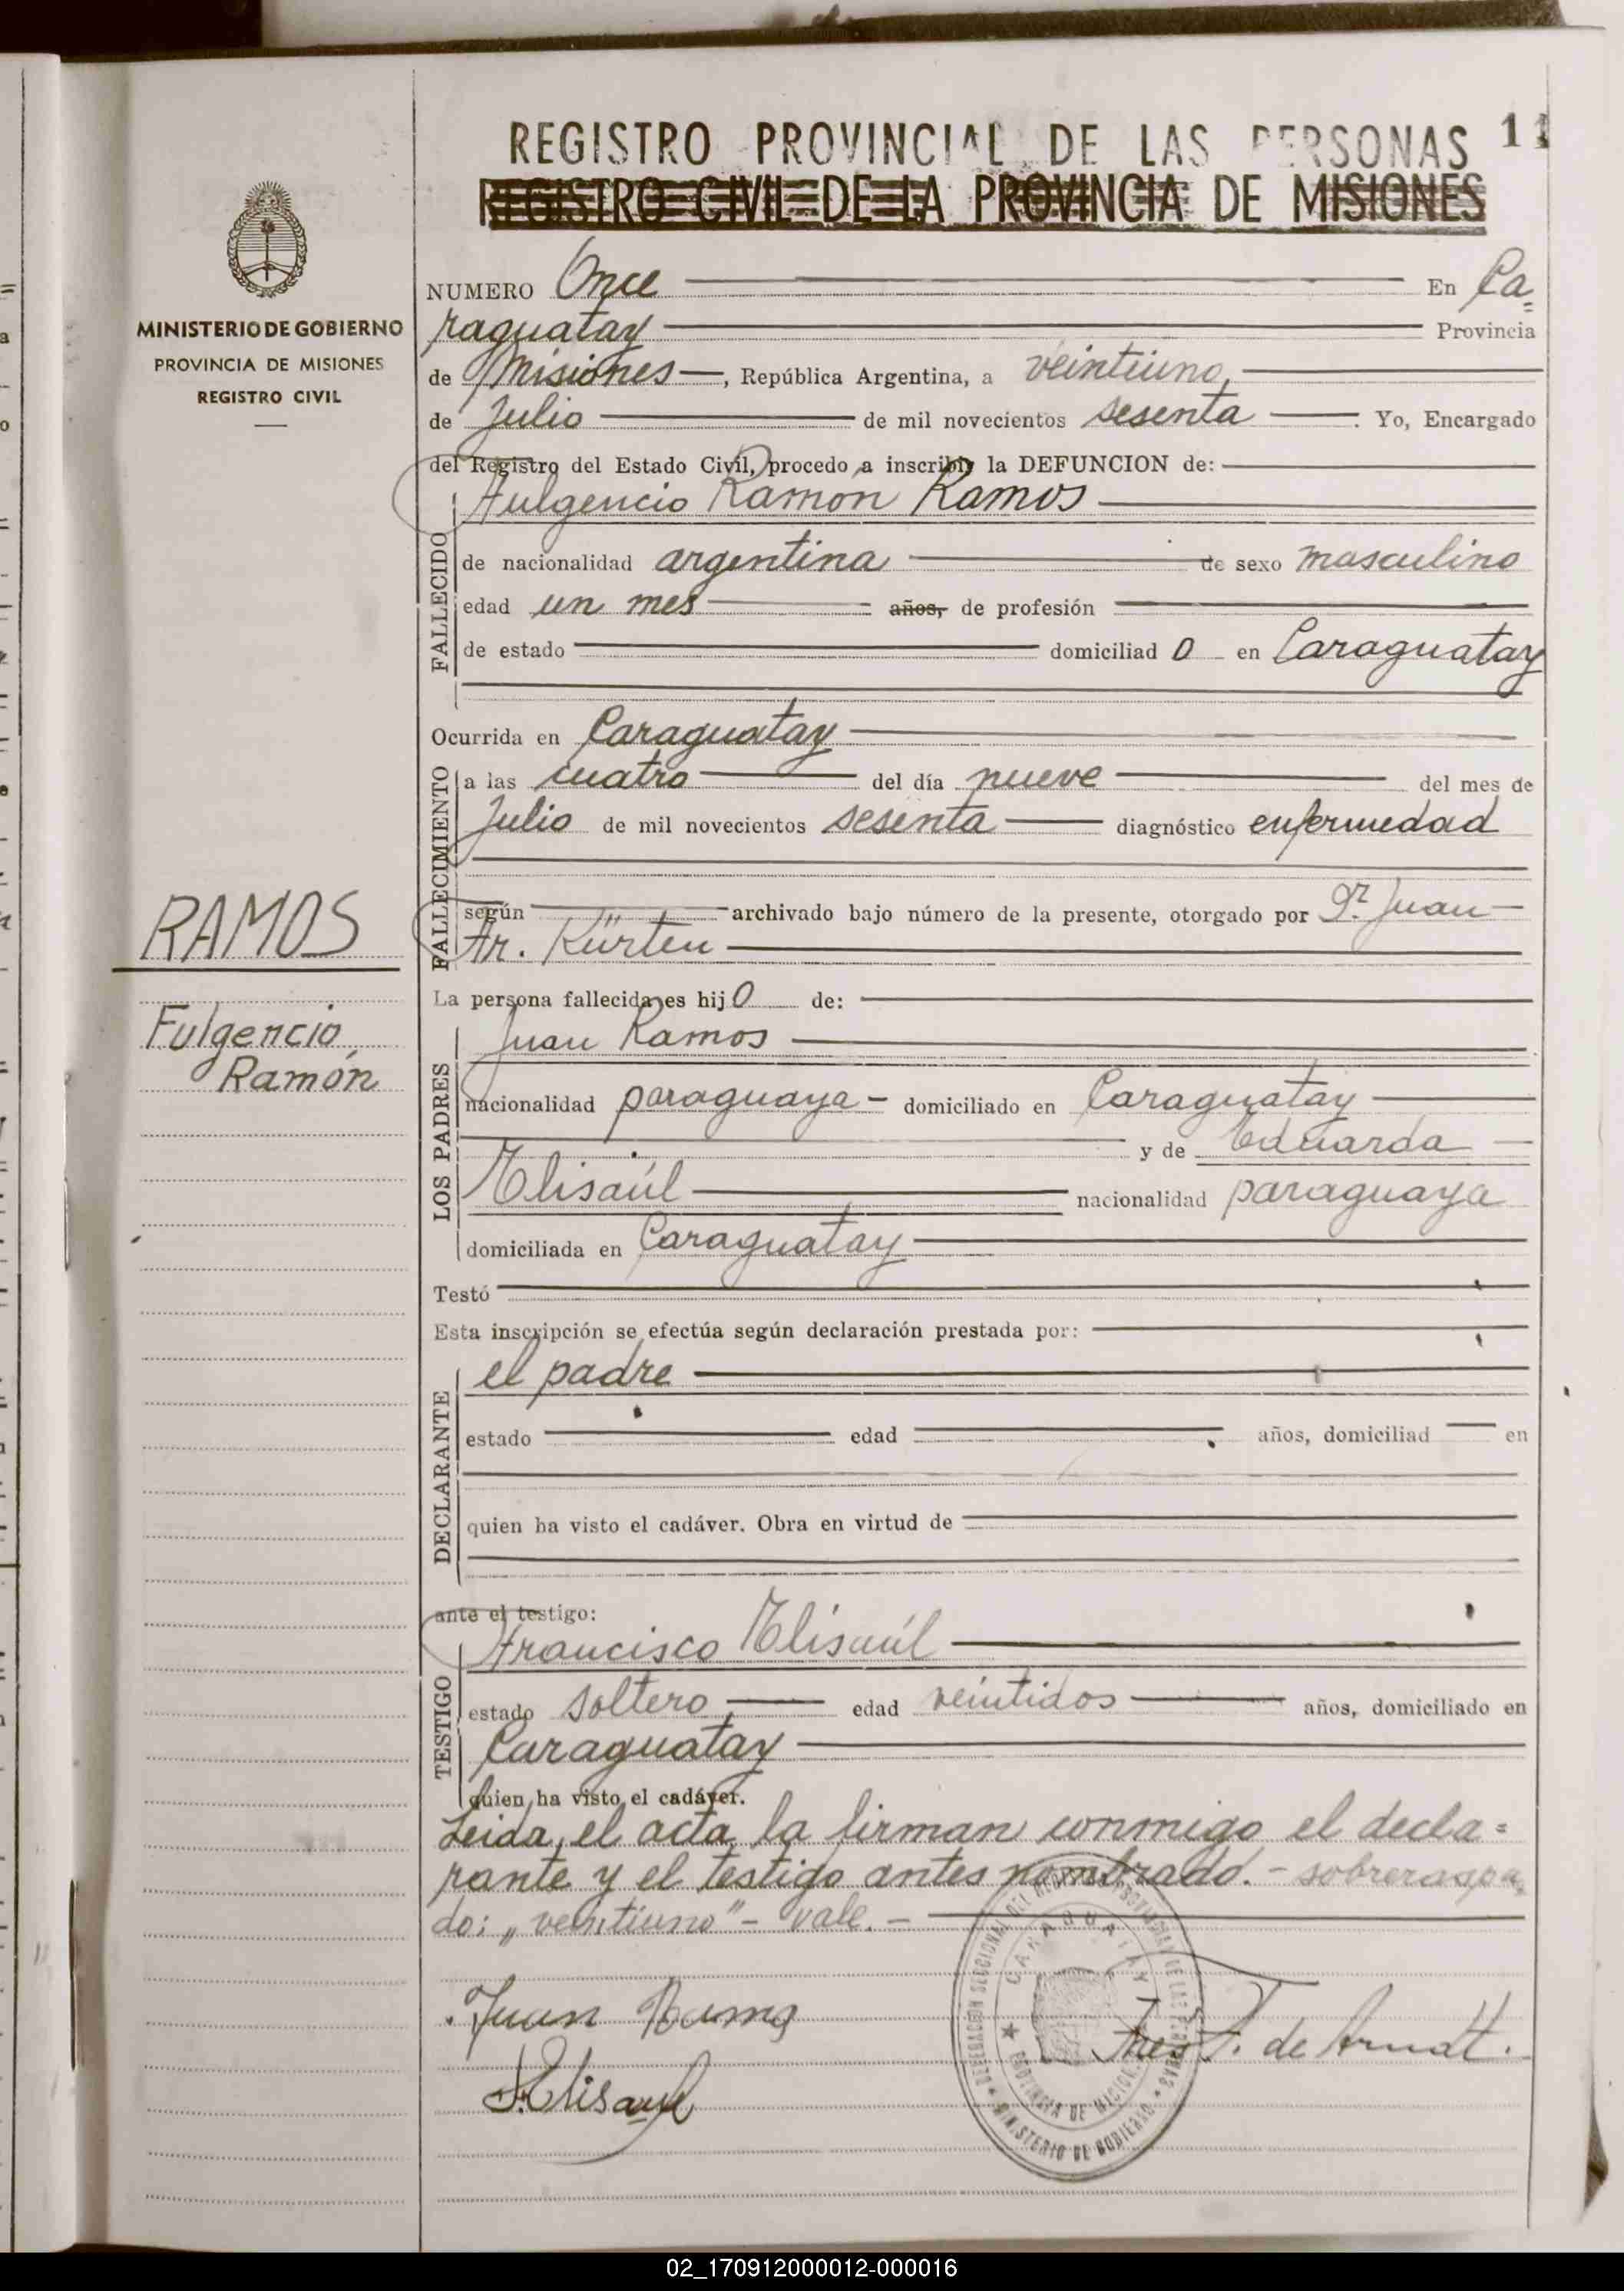 REGISTRO PROVINCIAL DE LAS PERSONAS 11
REGISTRO CIVIL DE LA PROVINCIA DE MISIONES
MINISTERIO DE GOBIERNO
PROVINCIA DE MISIONES
REGISTRO CIVIL
NUMERO Once En Ca=
raguatay Provincia
de Misiones, República Argentina, a veintiuno,
de Julio de mil novecientos sesenta . Yo, Encargado
del Registro del Estado Civil, procedo a inscribir la DEFUNCION de:
FALLECIDO
Fulgencio Ramón Ramos
de nacionalidad argentina de sexo masculino
edad un mes años, de profesión
de estado domiciliad o en Caraguatay
Ocurrida en Caraguatay
FALLECIMIENTO
a las cuatro del día nueve del mes de
Julio de mil novecientos sesenta diagnóstico enfermedad
según archivado bajo número de la presente, otorgado por Juan
Fr. Kürten
RAMOS
Fulgencio
Ramón
La persona fallecida es hijo de:
LOS PADRES
Juan Ramos
nacionalidad paraguaya - domiciliado en Caraguatay
y de Eduarda
Elisaúl nacionalidad paraguaya
domiciliada en Caraguatay
Testó
Esta inscripción se efectúa según declaración prestada por:
DECLARANTE
el padre
estado edad años, domiciliad en
quien ha visto el cadáver. Obra en virtud de
ante el testigo:
TESTIGO
Francisco Elisaúl
estado soltero edad veintidos años, domiciliado en
Caraguatay
quien ha visto el cadáver.
Leida, el acta, la firman conmigo el decla=
rante y el testigo antes nombrado. - sobreraspa=
do: „veintiuno" - vale. -
Juan Ramos
F. Elisaul
de Arndt.
DELEGACION SECCIONAL DEL REGISTRO PROVINCIAL DE LAS PERSONAS
CARAGUATAY
PROVINCIA DE MISIONES
MINISTERIO DE GOBIERNO
02_170912000012-000016